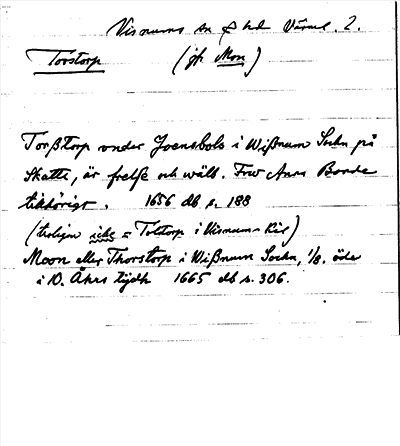 Visnums sn o hd Värml. 2.
Torstorp (jfr Mon)
Torßtorp vnder Joensbols i Wißnum Sochn på
Skatte, är frelsse och wälb. Frw Anna Baade
tilhörigt. 1656 db s. 188
(troligen icke = Tolstorp i Visnums-Kil)
Moon eller Thorstorp i Wißnum Sochn, 1/8. öde
i 10. Åhrs tijdh 1665 db s. 306.